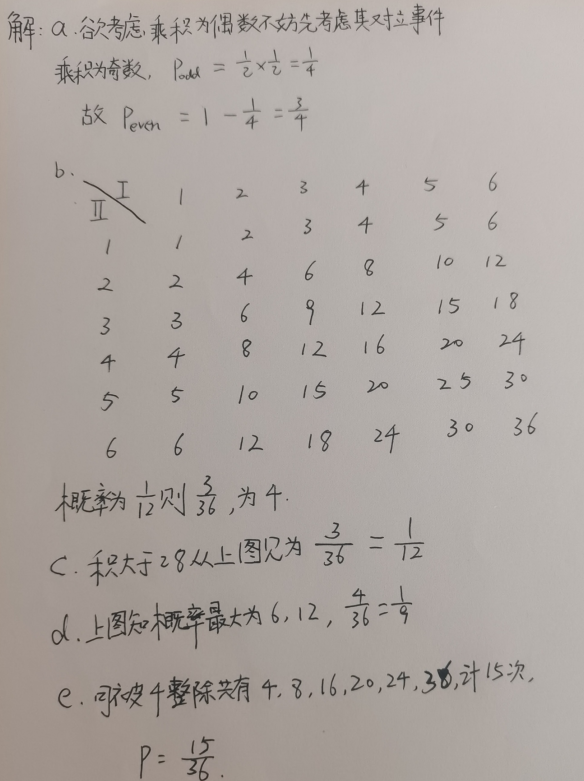 解: a. 欲考虑乘积为偶数不妨先考虑其对立事件
乘积为奇数, Podd = 1/2 × 1/2 = 1/4
故 Peven = 1 - 1/4 = 3/4
b.
I 1 2 3 4 5 6
II
1 1 2 3 4 5 6
2 2 4 6 8 10 12
3 3 6 9 12 15 18
4 4 8 12 16 20 24
5 5 10 15 20 25 30
6 6 12 18 24 30 36
概率为 1/12 则 3/36, 为 4.
c. 积大于28从上图见为 3/36 = 1/12
d. 上图知概率最大为 6, 12, 4/36 = 1/9
e. 可被4整除共有 4, 8, 16, 20, 24, 36, 计15次,
P = 15/36.